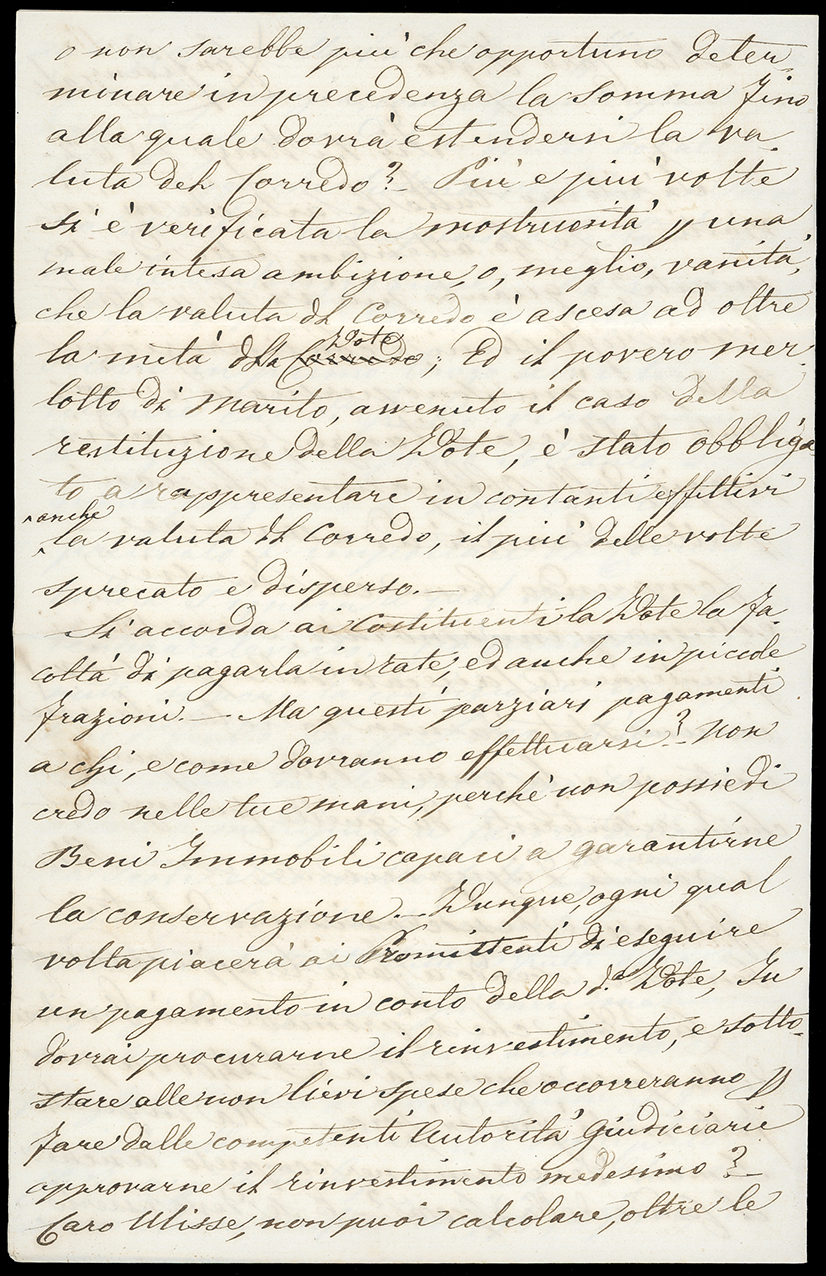 o non sarebbe più che opportuno deter-
minare in precedenza la somma fino
alla quale dovrà estendersi la va-
luta del Corredo? – Più e più volte
si è verificata la mostruosità p una
male intesa ambizione, o, meglio, vanità,
che la valuta del Corredo è ascesa ad oltre
la metà della Corredo Dote; Ed il povero mer-
lotto di Marito, avvenuto il caso della
restituzione della Dote, è stato obbliga
to a rappresentare in contanti effettivi
^anche
^la valuta del Corredo, il più delle volte
sprecato e disperso. –
Si accorda ai Costituenti la Dote la fa-
coltà di pagarla in rate, ed anche in piccole
frazioni. – Ma questi parziari pagamenti
a chi, e come dovranno effettuarsi? – Non
credo nelle tue mani, perchè non possiedi
Beni Immobili capaci a garantirne
la conservazione. – Dunque, ogni qual
volta piacerà ai Promittenti di eseguire
un pagamento in conto della d.a Dote, Tu
dovrai procurarne il rinvestimento, e sotto-
stare alle non lievi spese che occorreranno p
fare dalle competenti Autorità Giudiciarie
approvarne il rinvestimento medesimo? –
Caro Ulisse, non puoi calcolare, oltre le